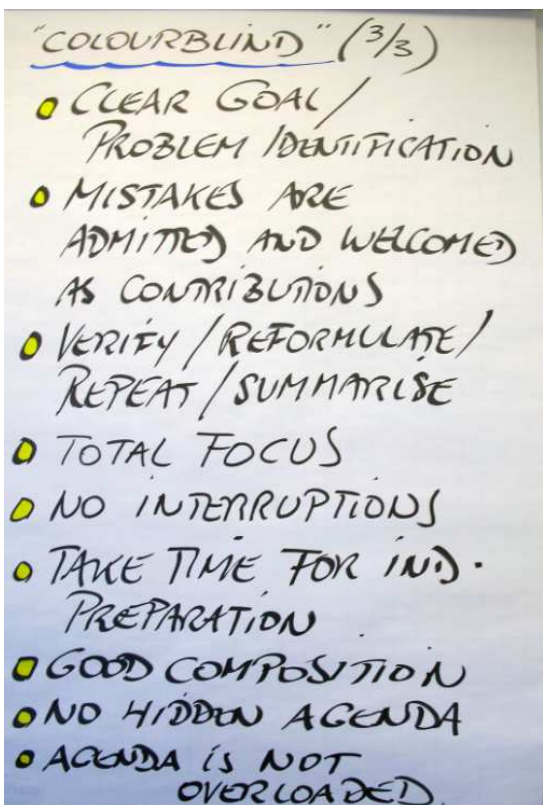 "COLOURBLIND" (3/3)
CLEAR GOAL/
PROBLEM IDENTIFICATION
MISTAKES ARE
ADMITTED AND WELCOMED
AS CONTRIBUTIONS
VERIFY/REFORMULATE/
REPEAT/SUMMARISE
TOTAL FOCUS
NO INTERRUPTIONS
TAKE TIME FOR IND.
PREPARATION
GOOD COMPOSITION
NO HIDDEN AGENDA
AGENDA IS NOT
OVERLOADED.